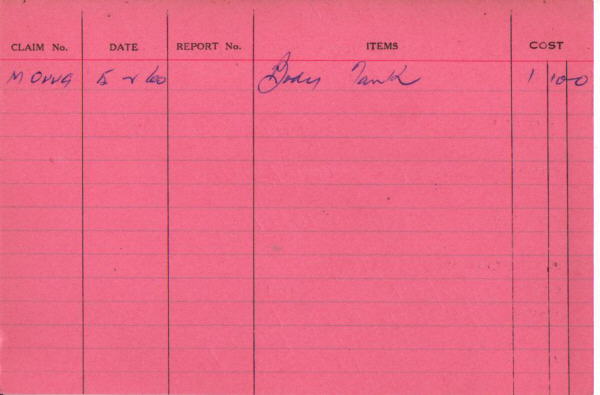 CLAIM No. DATE REPORT No. ITEMS COST
5 2 60 Body Tank 1 10 0